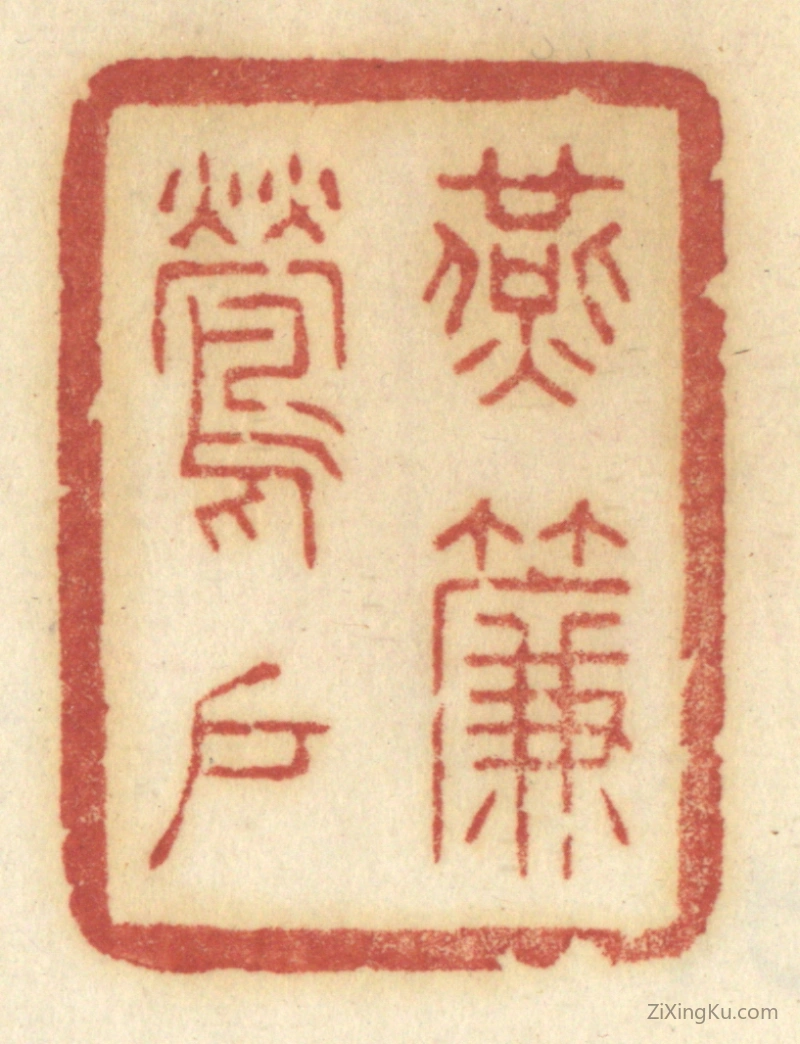 燕簾
鶯戶
ZiXingKu.com